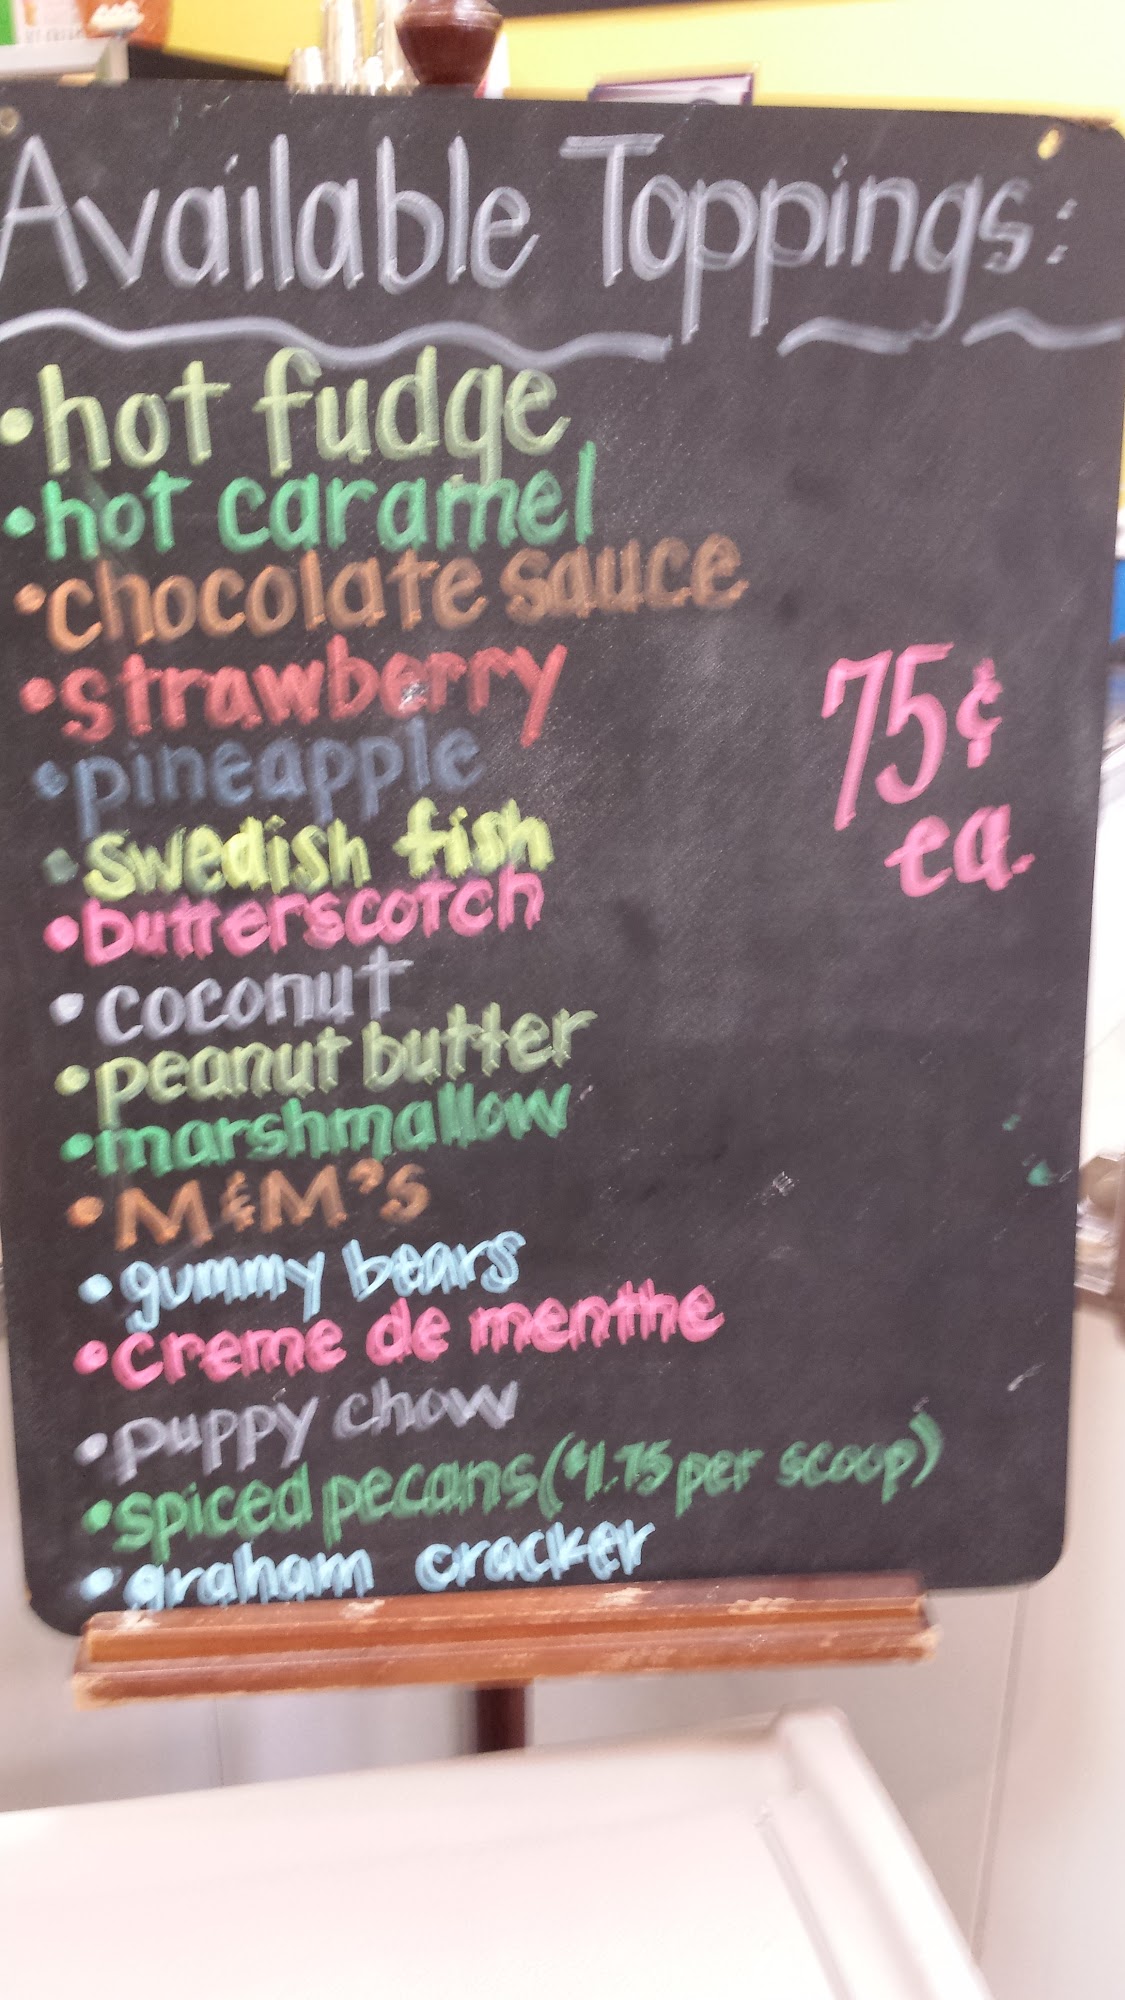 Available Toppings:
• hot fudge
• hot caramel
• chocolate sauce
• strawberry
75¢
• pineapple
ea.
• swedish fish
• butterscotch
• coconut
• peanut butter
• marshmallow
• M&M's
• gummy bears
• creme de menthe
• puppy chow
• spiced pecans ($1.75 per scoop)
• graham cracker